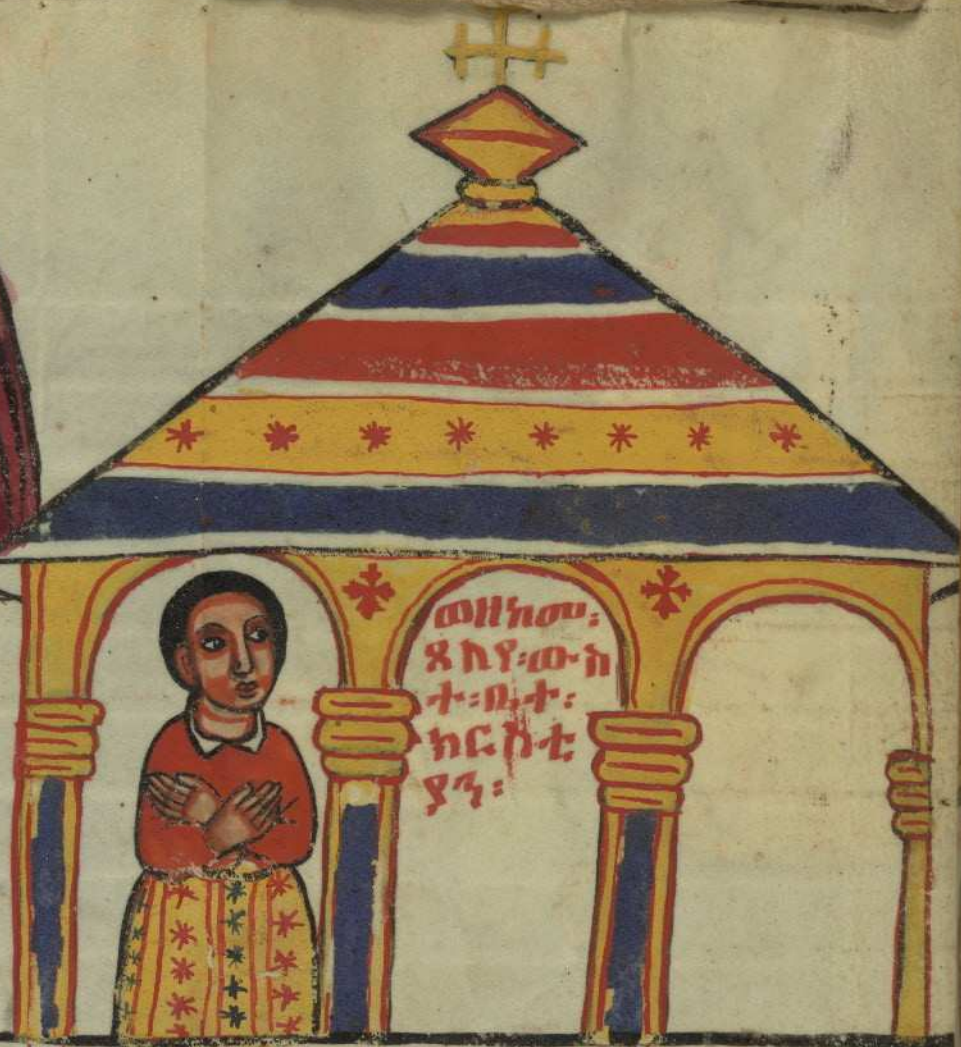 ወዘከመ፡
ጸለየ፡ውስ
ተ፡ቤተ፡
ክርስቲ
ያን፡